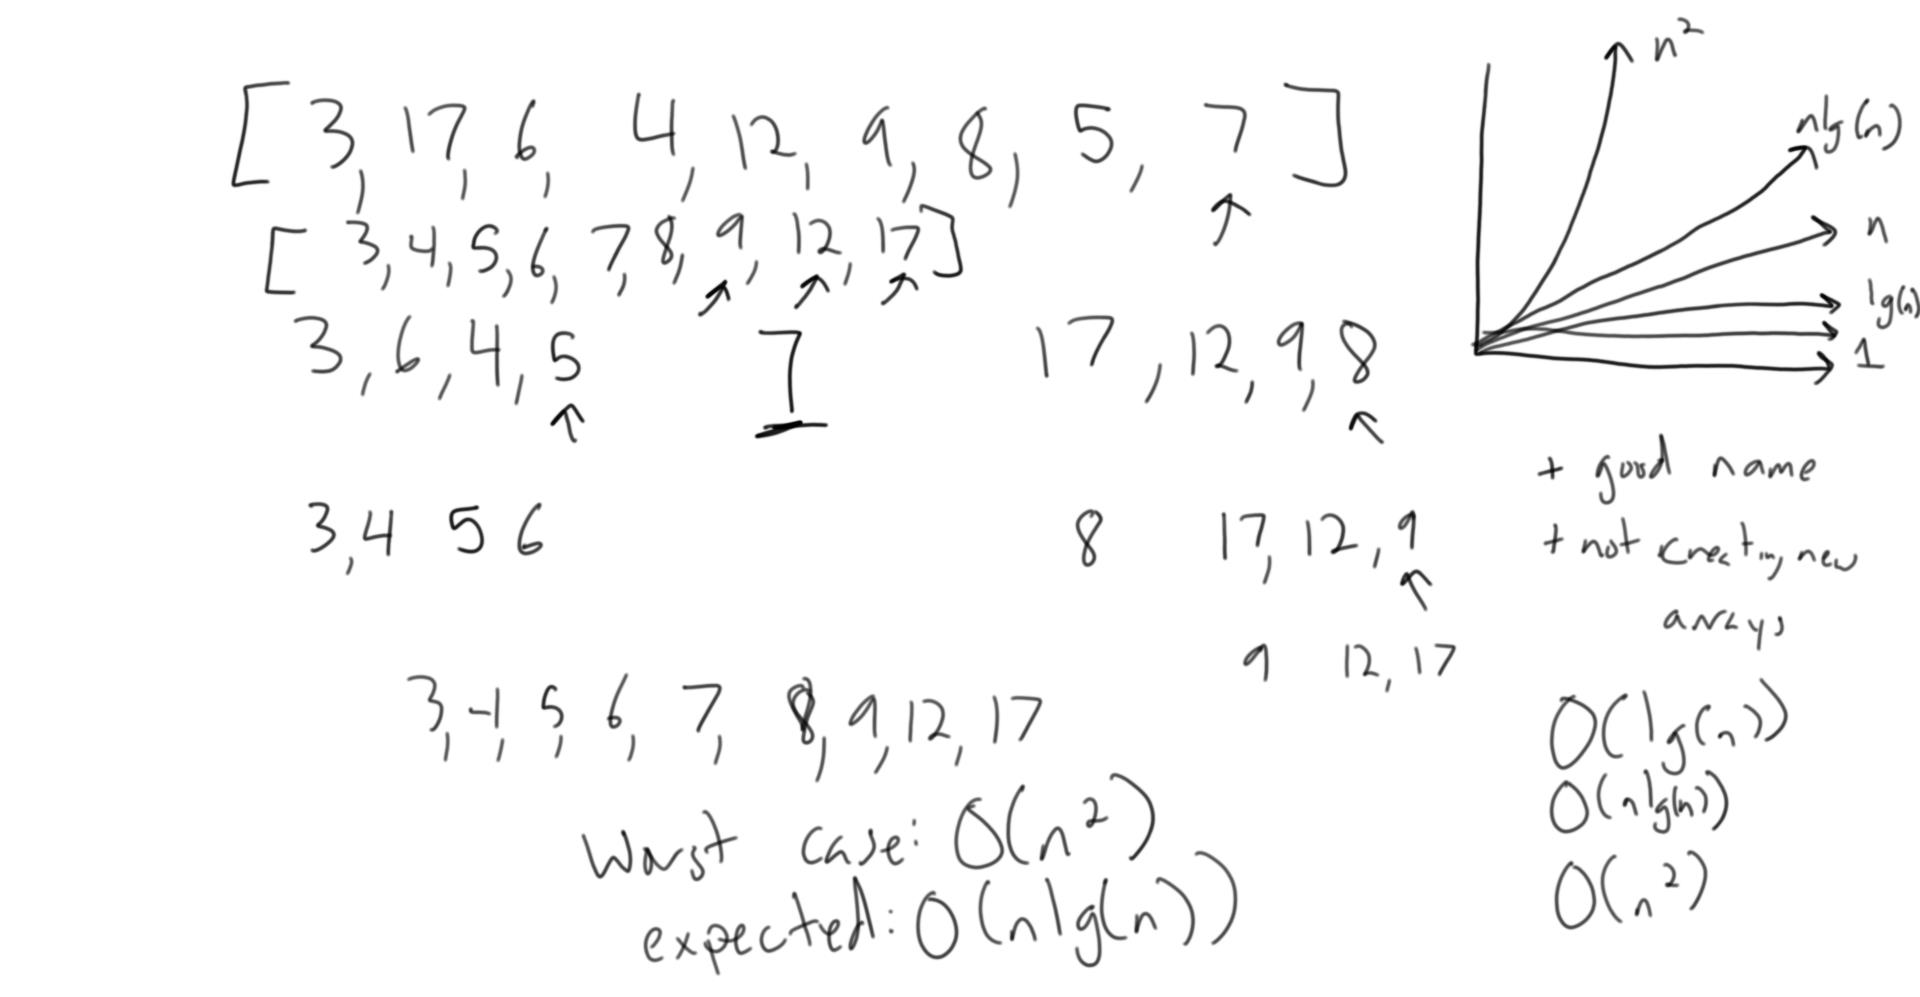 [3, 17, 6, 4, 12, 9, 8, 5, 7]
[3, 4, 5, 6, 7, 8, 9, 12, 17]
3, 6, 4, 5 7 17, 12, 9, 8
3, 4 5 6 8 17, 12, 9
9 12, 17
3, 4, 5, 6, 7, 8, 9, 12, 17
Worst case: O(n²)
expected: O(n lg(n))
n²
n lg(n)
n
lg(n)
1
+ good name
+ not creating new
arrays
O(lg(n))
O(n lg(n))
O(n²)